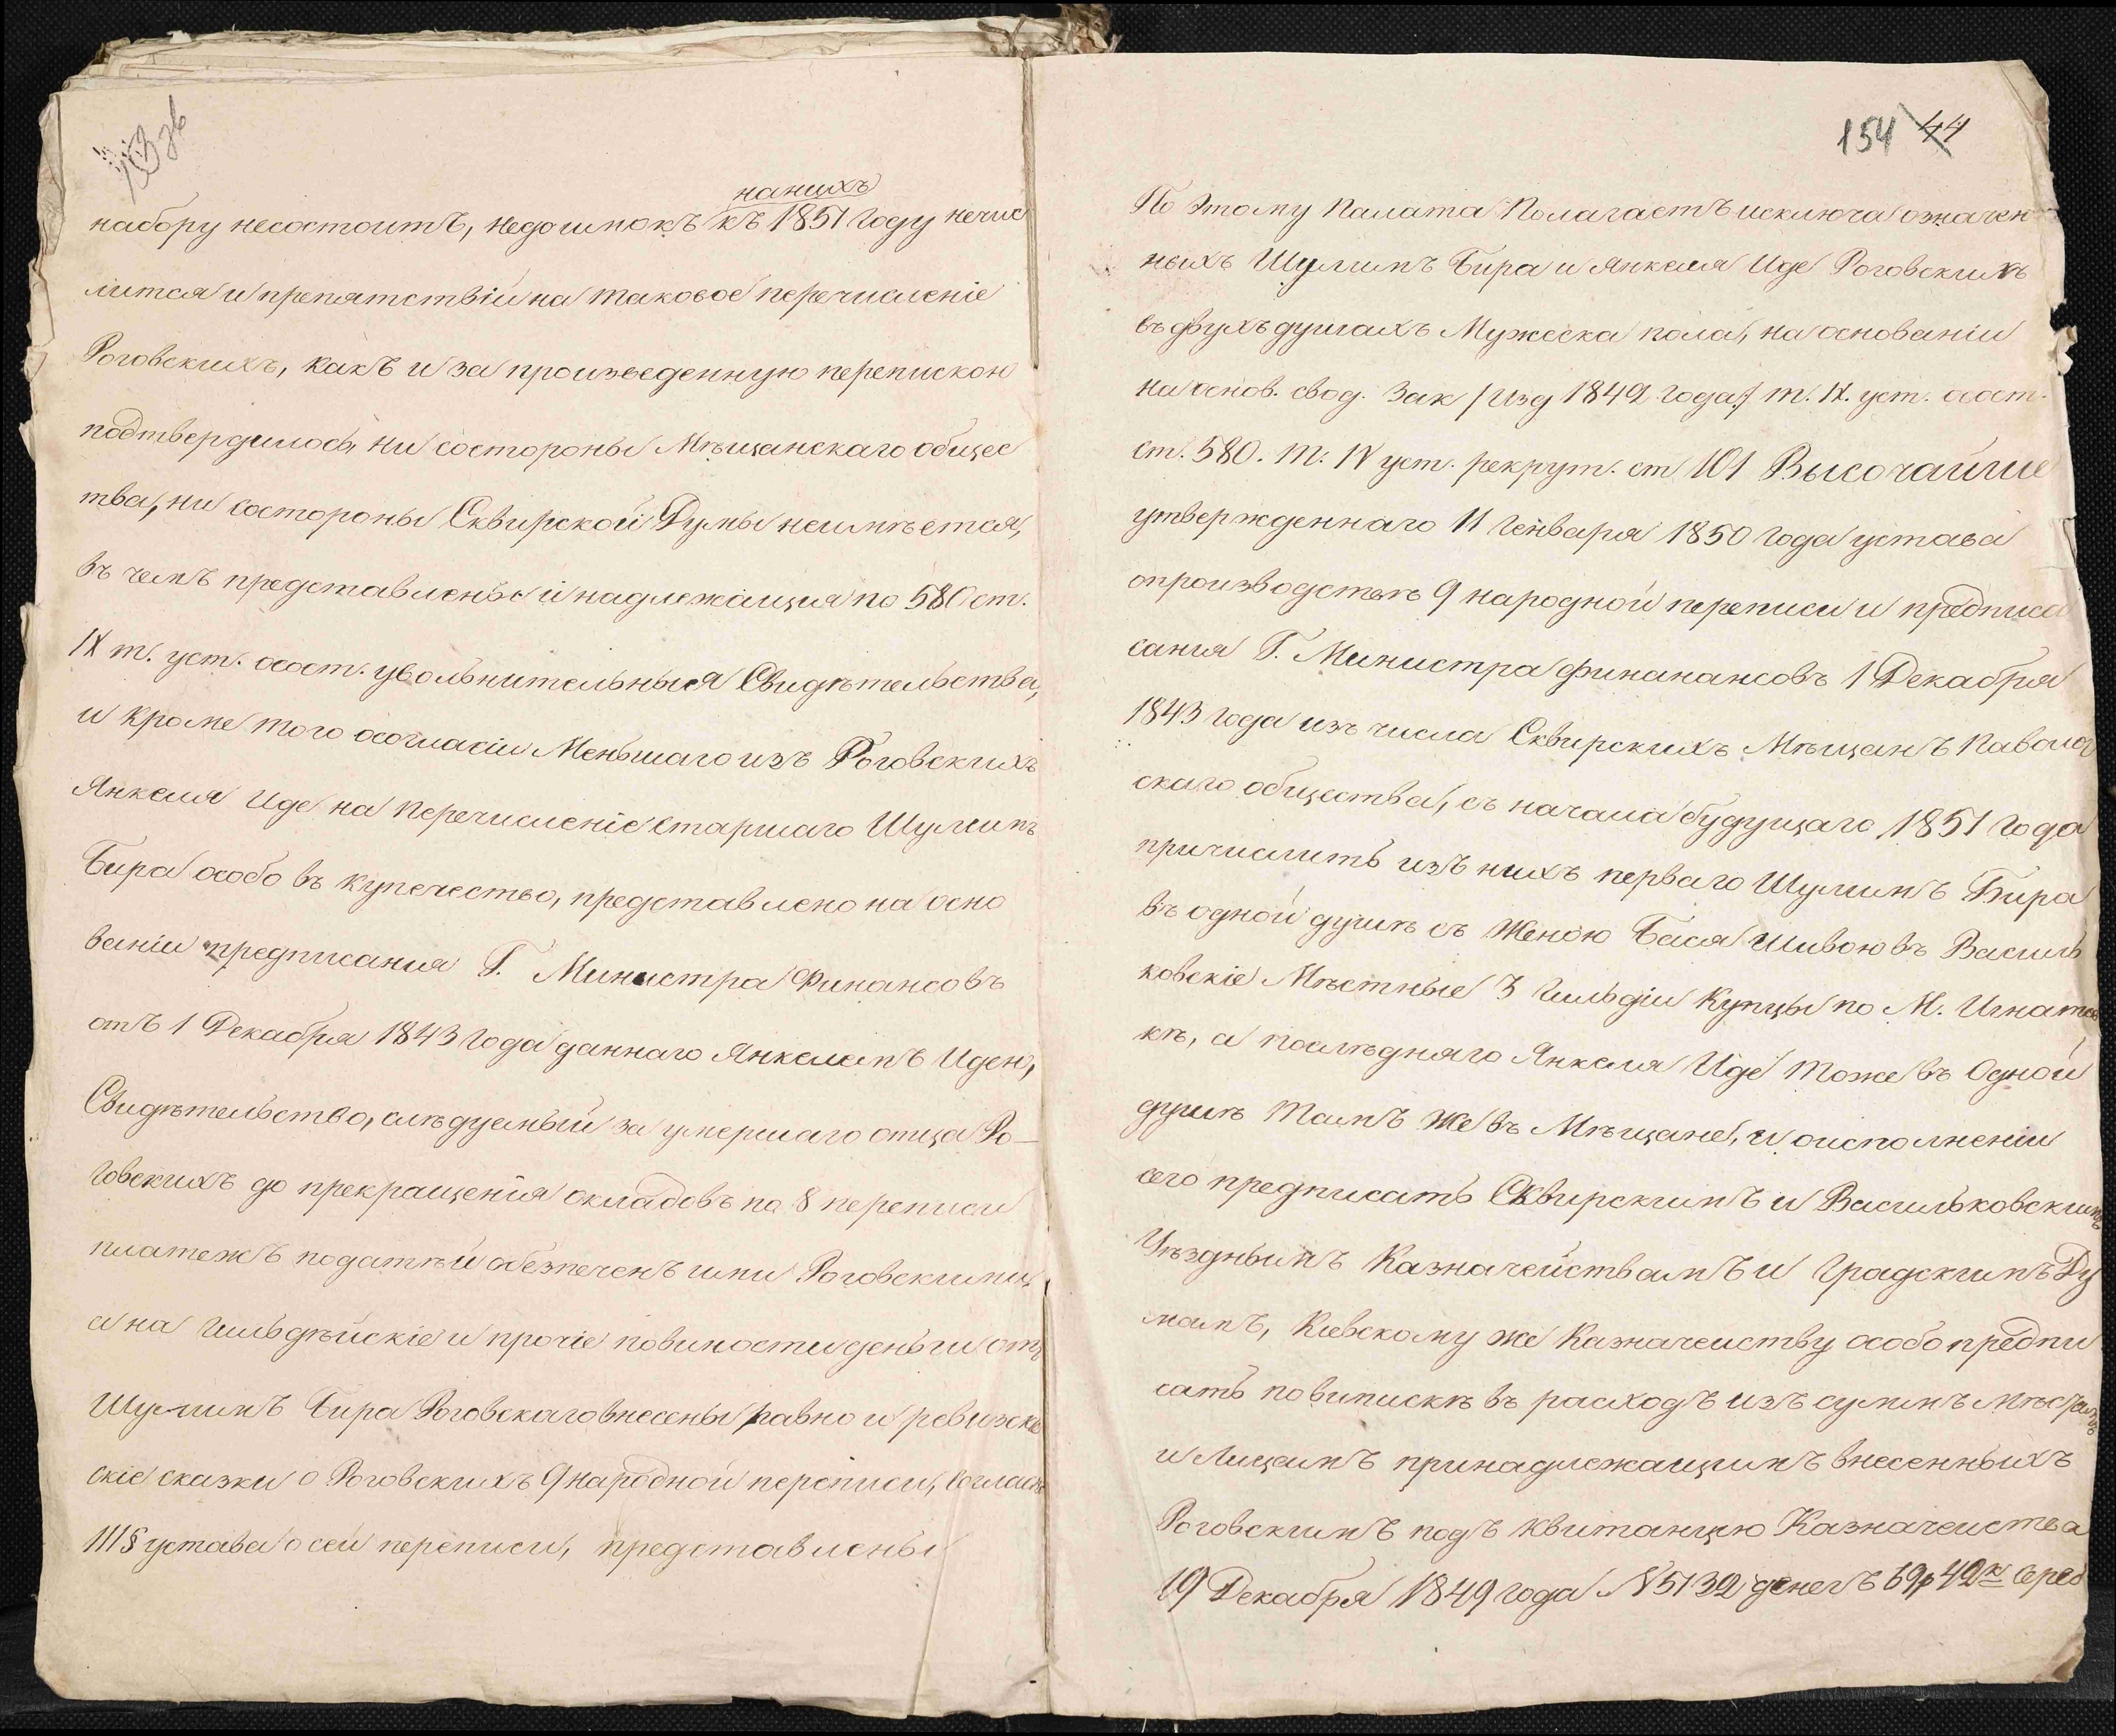 153 зв
нанихъ
набору несостоитъ, недоимокъ къ 1851 году нечис
лится и препятствій на таковое перечисленіе
Роговскихъ, какъ и за произведенную перепискою
подтвердилось, ни состороны Мѣщанскаго общес
тва, ни состороны Сквирской Думы неимѣется,
въ чемъ представлены и надлежащія по 580 ст.
IX т. уст. осост. увольнительныя Свидѣтельства,
и кроме того осогласіи Меньшаго изъ Роговскихъ
Янкеля Иде на перечисленіе старшаго Шулимъ
Бира особо въ купечество, представлено на осно
ваніи предписания Г. Министра Финансовъ
отъ 1 Декабря 1843 года даннаго Янкелемъ Идею,
Свидѣтельство, слѣдуемый за умершаго отца Ро-
говскихъ до прекращенія окладовъ по 8 переписи
платежъ податѣй обезпеченъ ими Роговскими,
а на гильдѣйскіе и прочіе повиности деньги отъ
Шулимъ Бира Роговскаго внесены равно и ревизскі
скіе сказки о Роговскихъ 9 народной переписи, согласно
111 § устава о сей переписи, представлены
154 44
По этому Палата Полагаетъ исключа означен
ныхъ Шулимъ Бира и Янкеля Иде Роговскихъ
въ двухъ душахъ Мужеска пола, на основаніи
на основ. свод. Зак /Изд 1842 года/ т. IX. уст. осост.
ст. 580. т. IV уст. рекрут. ст 101 Высочайше
утвержденнаго 11 Генваря 1850 года устава
опроизводствѣ 9 народной переписи и предписа
сания Г. Министра Финанансовъ 1 Декабря
1843 года изъ числа Сквирскихъ Мѣщанъ Паволоч
скаго общества, съ начала будущаго 1851 года
причислить изъ нихъ перваго Шулимъ Бира
въ одной душѣ съ Женою Бася Шивою въ Василь
ковскіе Мѣстные 3 гильдіи Купцы по М. Игнатов
кѣ, а послѣдняго Янкеля Иде тоже въ Одной
душѣ тамъ же въ Мѣщане, и оисполненіи
сего предписать Сквирскимъ и Васильковскимъ
Уѣзднымъ Казначействамъ и Градскимъ Ду
мамъ, Кіевскому же Казначеиству особо предпи
сать по випискѣ въ расходъ изъ суммъ мѣстамъ
и Лицамъ принадлежащимъ внесенныхъ
Роговскимъ подъ квитанцію Казначеиства
19 Декабря 1849 года N 5132 денегъ 69 р 42 к Сереб